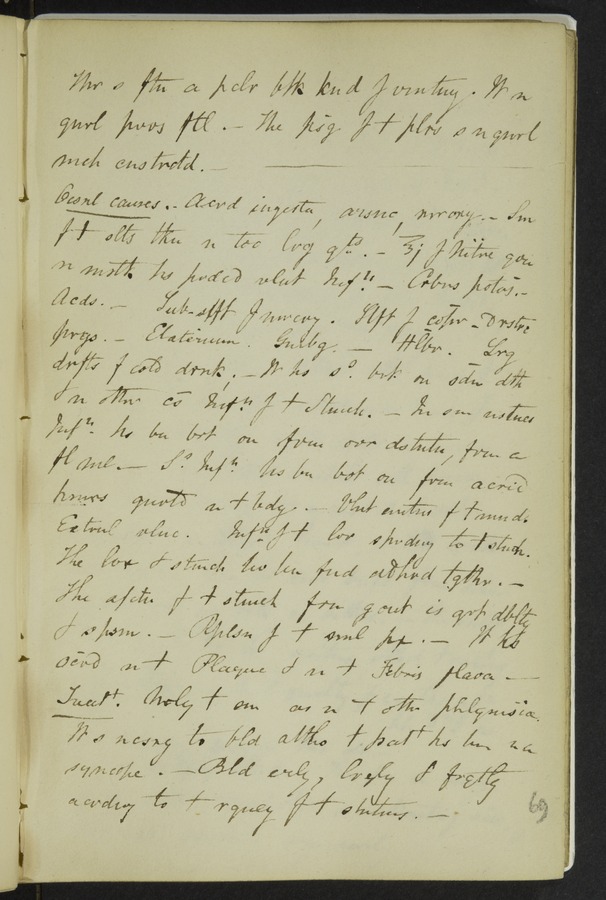 Thr s ftn a pclr blk knd f vmtng. It s n
gnrl provs ftl. — The psg f t plrs s n gnrl
mch cnstrctd. —
Occsnl causes. - Acrd ingesta, arsnc, mrcry. - Sm
f t slts thn n too lrg qts. - ℥j f Nitre gvn
n mstk hs prdcd vlnt Infn. - Crbns potas. -
Acds. - Sub-slft f mrcry. Slft f copr - Drstc
prgs. - Elaterium. Gmbg. - Hlbr. Lrg
drfts f cold drnk. - It hs so. brt on sdn dth
n othr cs Infn f t Stmch. - In sm nstncs
Infn. hs bn brt on from ovr dstntn, from a
fl ml. - So Infn hs bn bot on from acrid
hmrs gnrtd n t bdy. - Vlnt emtns f t mnd.
Extrnl vlnc. Infn f t lvr sprdng to t stmch.
The lvr & stmch hv bn fnd adhrd tgthr. -
The afctn f t stmch from gout is grt dblty
& spsm. - Rplsn f t sml px. - It hs
ocrd n t Plague & n t Febris flava -
Treatt. Nrly t sm as n t othr phlgmsia.
It s ncsry to bld altho t patt hs bn n a
syncope. - Bld erly, lrgly & frqtly
acrdng to t rgncy f t smtms. -
69